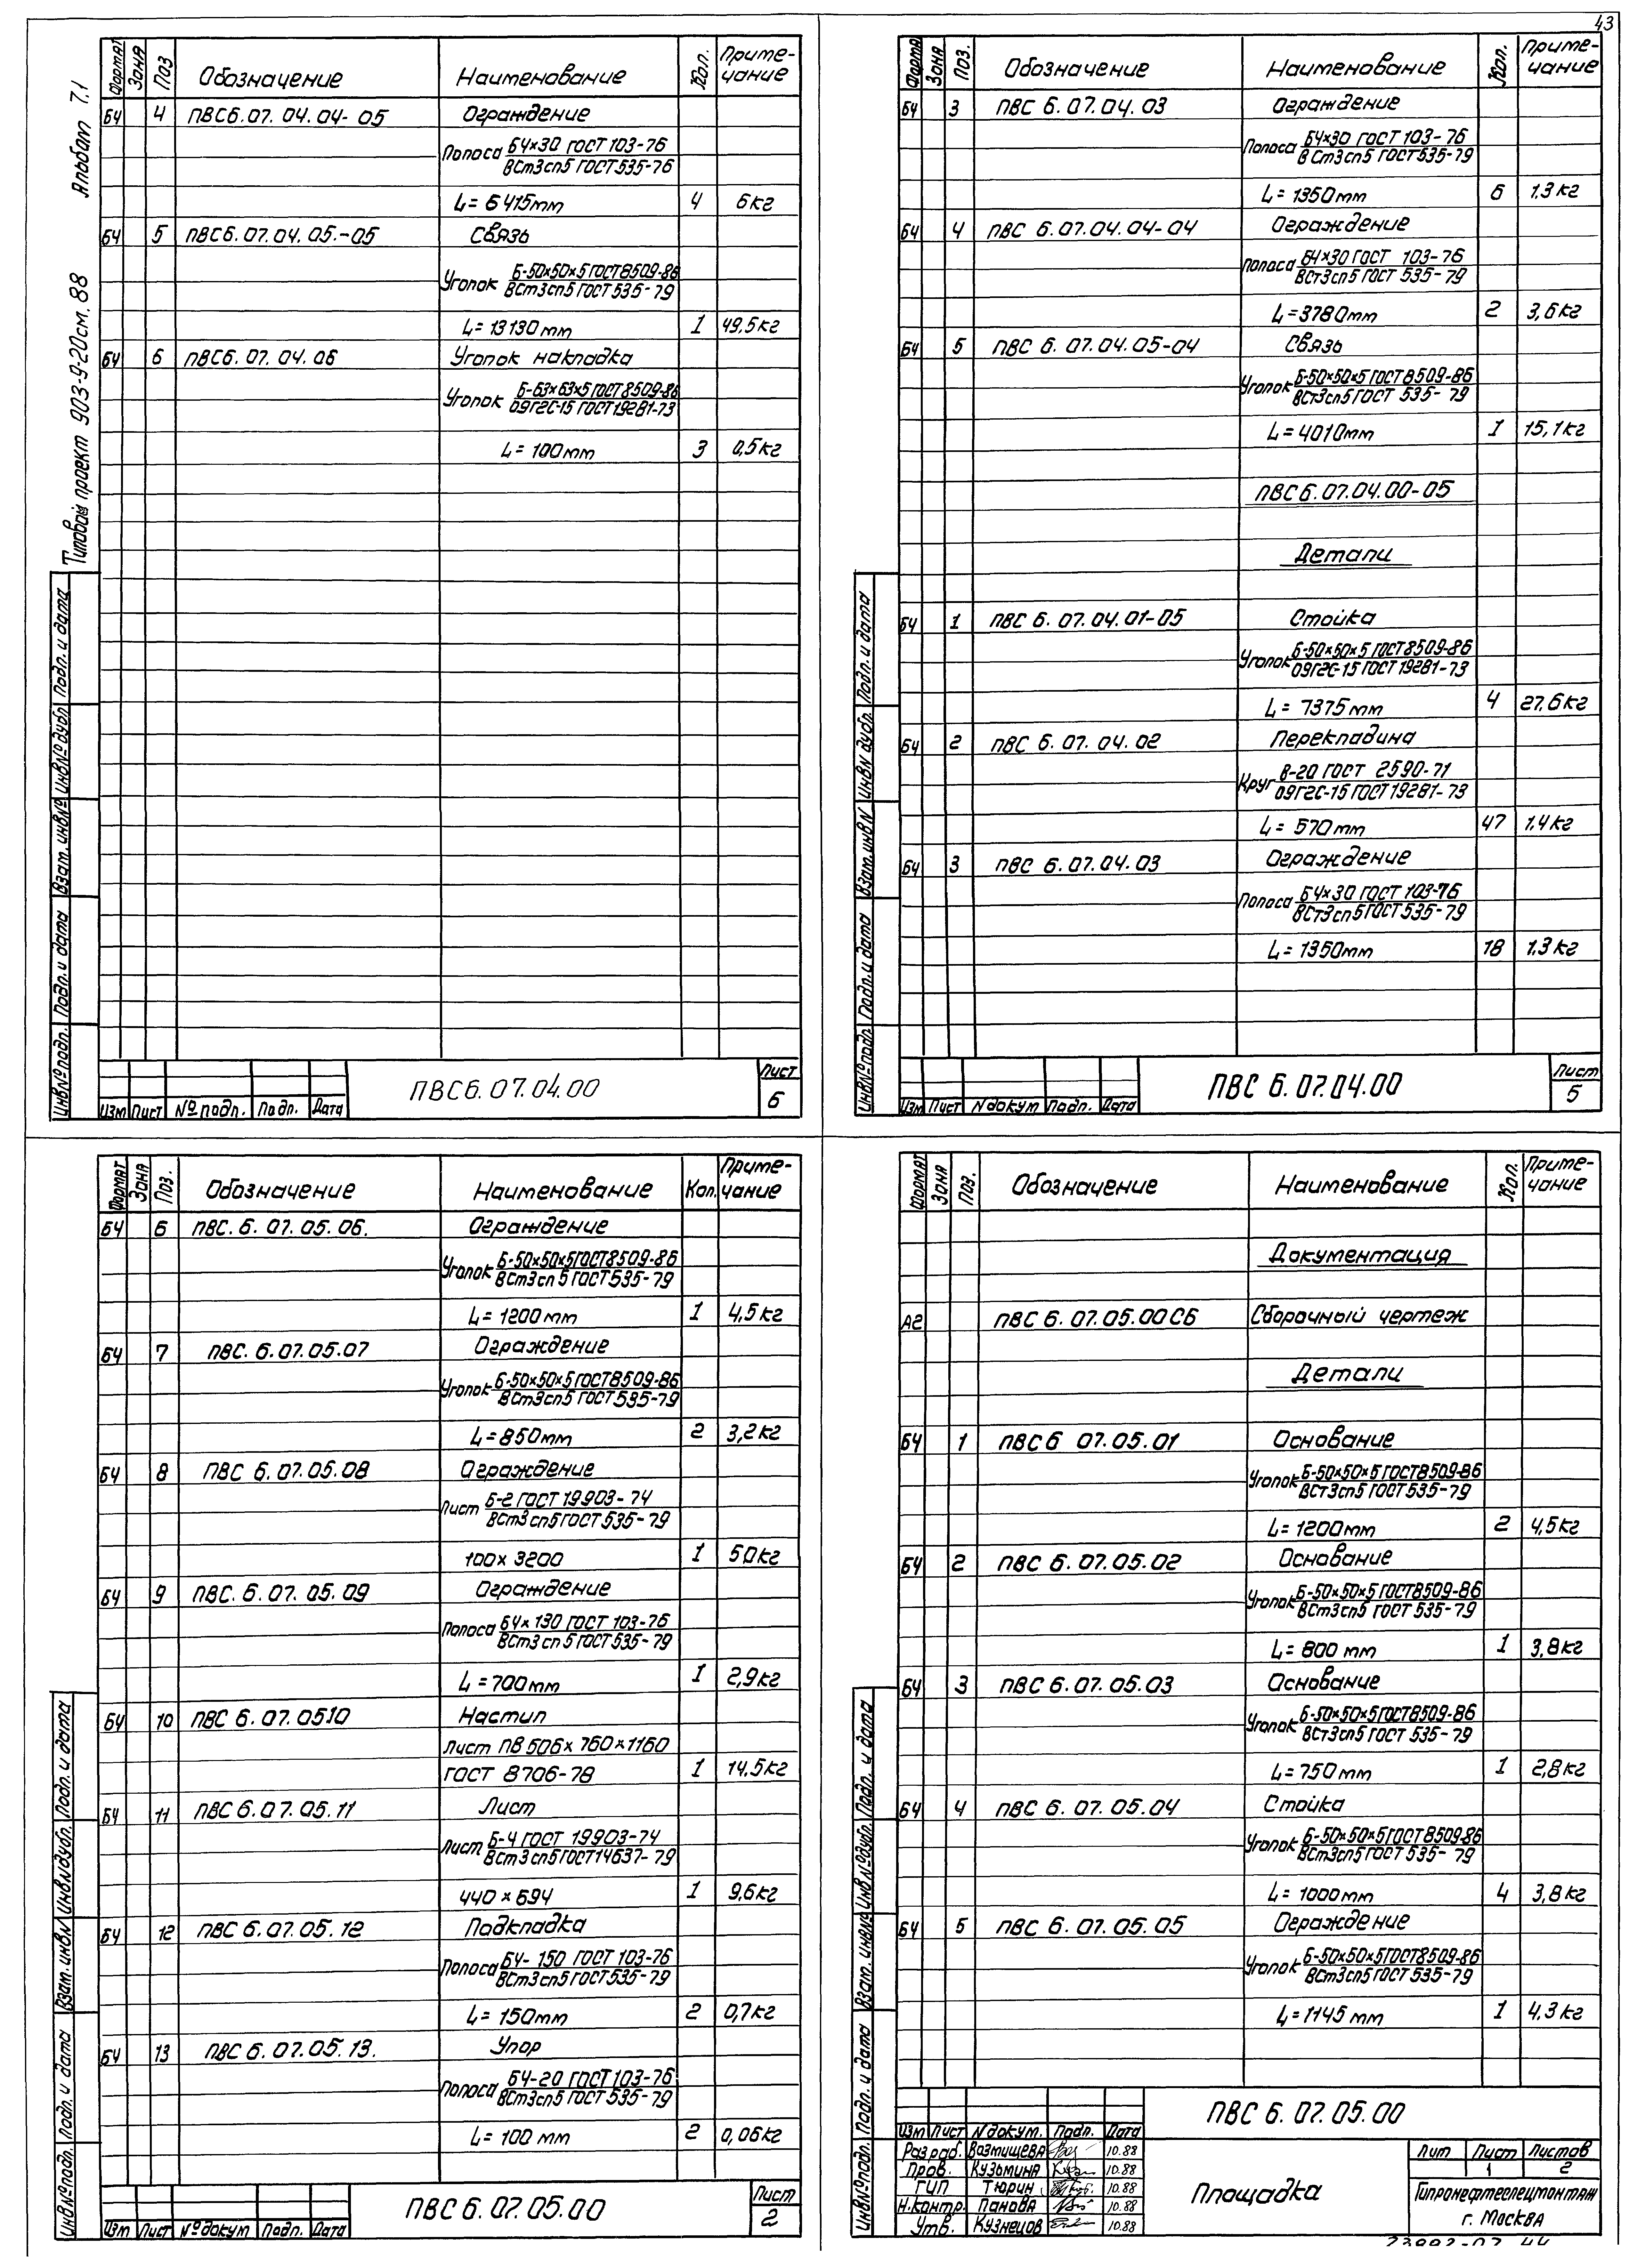 43
Альбом 7.1
Типовой проект 903-9-20см. 88
Формат Зона Поз Обозначение Наименование Кол. Приме-чание
БЧ 4 ПВС6.07.04.04-05 Ограждение
Полоса Б4×30 ГОСТ 103-76
ВСт3сп5 ГОСТ 535-76
L=6415мм 4 6кг
БЧ 5 ПВС6.07.04.05.-05 Связь
Уголок Б-50×50×5 ГОСТ 8509-86
ВСт3сп5 ГОСТ 535-79
L=13130мм 1 49.5кг
БЧ 6 ПВС6.07.04.06 Уголок накладка
Уголок Б-63×63×5 ГОСТ 8509-86
09Г2С-15 ГОСТ 19281-73
L=100мм 3 0,5кг
Инв№подл. Подп. и дата Взат.инв№ Инв№дубл Подп. и дата
Изм Лист №подп. Подп. Дата
ПВС6.07.04.00
Лист
6
Формат Зона Поз. Обозначение Наименование Кол. Приме-чание
БЧ 3 ПВС 6.07.04.03 Ограждение
Полоса Б4×30 ГОСТ 103-76
ВСт3сп5 ГОСТ 535-79
L=1350мм 6 1.3кг
БЧ 4 ПВС 6.07.04.04-04 Ограждение
Полоса Б4×30 ГОСТ 103-76
ВСт3сп5 ГОСТ 535-79
L=3780мм 2 3,6кг
БЧ 5 ПВС 6.07.04.05-04 Связь
Уголок Б-50×50×5 ГОСТ 8509-86
ВСт3сп5 ГОСТ 535-79
L=4010мм 1 15,1кг
ПВС 6.07.04.00-05
Детали
БЧ 1 ПВС 6.07.04.01-05 Стойка
Уголок Б-50×50×5 ГОСТ 8509-86
09Г2С-15 ГОСТ 19281-73
L=7375мм 4 27.6кг
БЧ 2 ПВС 6.07.04.02 Перекладина
Круг В-20 ГОСТ 2590-71
09Г2С-15 ГОСТ 19281-73
L=570мм 47 1.4кг
БЧ 3 ПВС 6.07.04.03 Ограждение
Полоса Б4×30 ГОСТ 103-76
ВСт3сп5 ГОСТ 535-79
L=1350мм 18 1.3кг
Инв№подл. Подп.и дата Взат.инвN ИнвN дубл. Подп. и дата
Изм Лист Nдокум Подп. Дата
ПВС 6.07.04.00
Лист
5
Формат Зона Поз. Обозначение Наименование Кол. Приме-чание
БЧ 6 ПВС.6.07.05.06. Ограждение
Уголок Б-50×50×5 ГОСТ 8509-86
ВСт3сп5 ГОСТ 535-79
L=1200мм 1 4,5кг
БЧ 7 ПВС.6.07.05.07 Ограждение
Уголок Б-50×50×5 ГОСТ 8509-86
ВСт3сп5 ГОСТ 535-79
L=850мм 2 3,2кг
БЧ 8 ПВС 6.07.05.08 Ограждение
Лист Б-2 ГОСТ 19903-74
ВСт3сп5 ГОСТ 535-79
100×3200 1 50кг
БЧ 9 ПВС.6.07.05.09 Ограждение
Полоса Б4×130 ГОСТ 103-76
ВСт3сп5 ГОСТ 535-79
L=700мм 1 2,9кг
БЧ 10 ПВС 6.07.0510 Настил
Лист ПВ 506×760×1160
ГОСТ 8706-78 1 14,5кг
БЧ 11 ПВС 6.07.05.11 Лист
Лист Б-4 ГОСТ 19903-74
ВСт3сп5 ГОСТ 14637-79
440×694 1 9,6кг
БЧ 12 ПВС 6.07.05.12 Подкладка
Полоса Б4-150 ГОСТ 103-76
ВСт3сп5 ГОСТ 535-79
L=150мм 2 0,7кг
БЧ 13 ПВС 6.07.05.13. Упор
Полоса Б4-20 ГОСТ 103-76
ВСт3сп5 ГОСТ 535-79
L=100 мм 2 0,06кг
Инв№подл. Подп. и дата Взат.инвN ИнвNдубл. Подп. и дата
Изм Лист №докум Подп. Дата
ПВС 6.07.05.00
Лист
2
Формат Зона Поз. Обозначение Наименование Кол. Приме-чание
Документация
А2 ПВС 6.07.05.00СБ Сборочный чертеж
Детали
БЧ 1 ПВС 6 07.05.01 Основание
Уголок Б-50×50×5 ГОСТ 8509-86
ВСт3сп5 ГОСТ 535-79
L=1200мм 2 4,5кг
БЧ 2 ПВС 6.07.05.02 Основание
Уголок Б-50×50×5 ГОСТ 8509-86
ВСт3сп5 ГОСТ 535-79
L=800 мм 1 3,8кг
БЧ 3 ПВС 6.07.05.03 Основание
Уголок Б-50×50×5 ГОСТ 8509-86
ВСт3сп5 ГОСТ 535-79
L=750мм 1 2,8кг
БЧ 4 ПВС 6.07.05.04 Стойка
Уголок Б-50×50×5 ГОСТ 8509-86
ВСт3сп5 ГОСТ 535-79
L=1000мм 4 3,8кг
БЧ 5 ПВС 6.07.05.05 Ограждение
Уголок Б-50×50×5 ГОСТ 8509-86
ВСт3сп5 ГОСТ 535-79
L=1145 мм 1 4.3кг
Инв№подл. Подп. и дата Взат. инв№ Инв№дубл. Подп. и дата
ПВС 6.07.05.00
Изм Лист Nдокум. Подп. Дата
Разраб. Возмищева 10.88
Пров. Кузьмина 10.88
ГИП Тюрин 10.88
Н.контр. Панова 10.88
Утв. Кузнецов 10.88
Площадка
Лит Лист Листов
1 2
Гипронефтеспецмонтаж
г. Москва